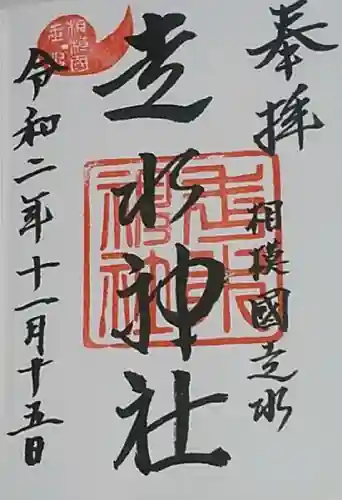 奉拝
相模國走水
走水神社
令和二年十一月十五日
走水神社
相模國走水